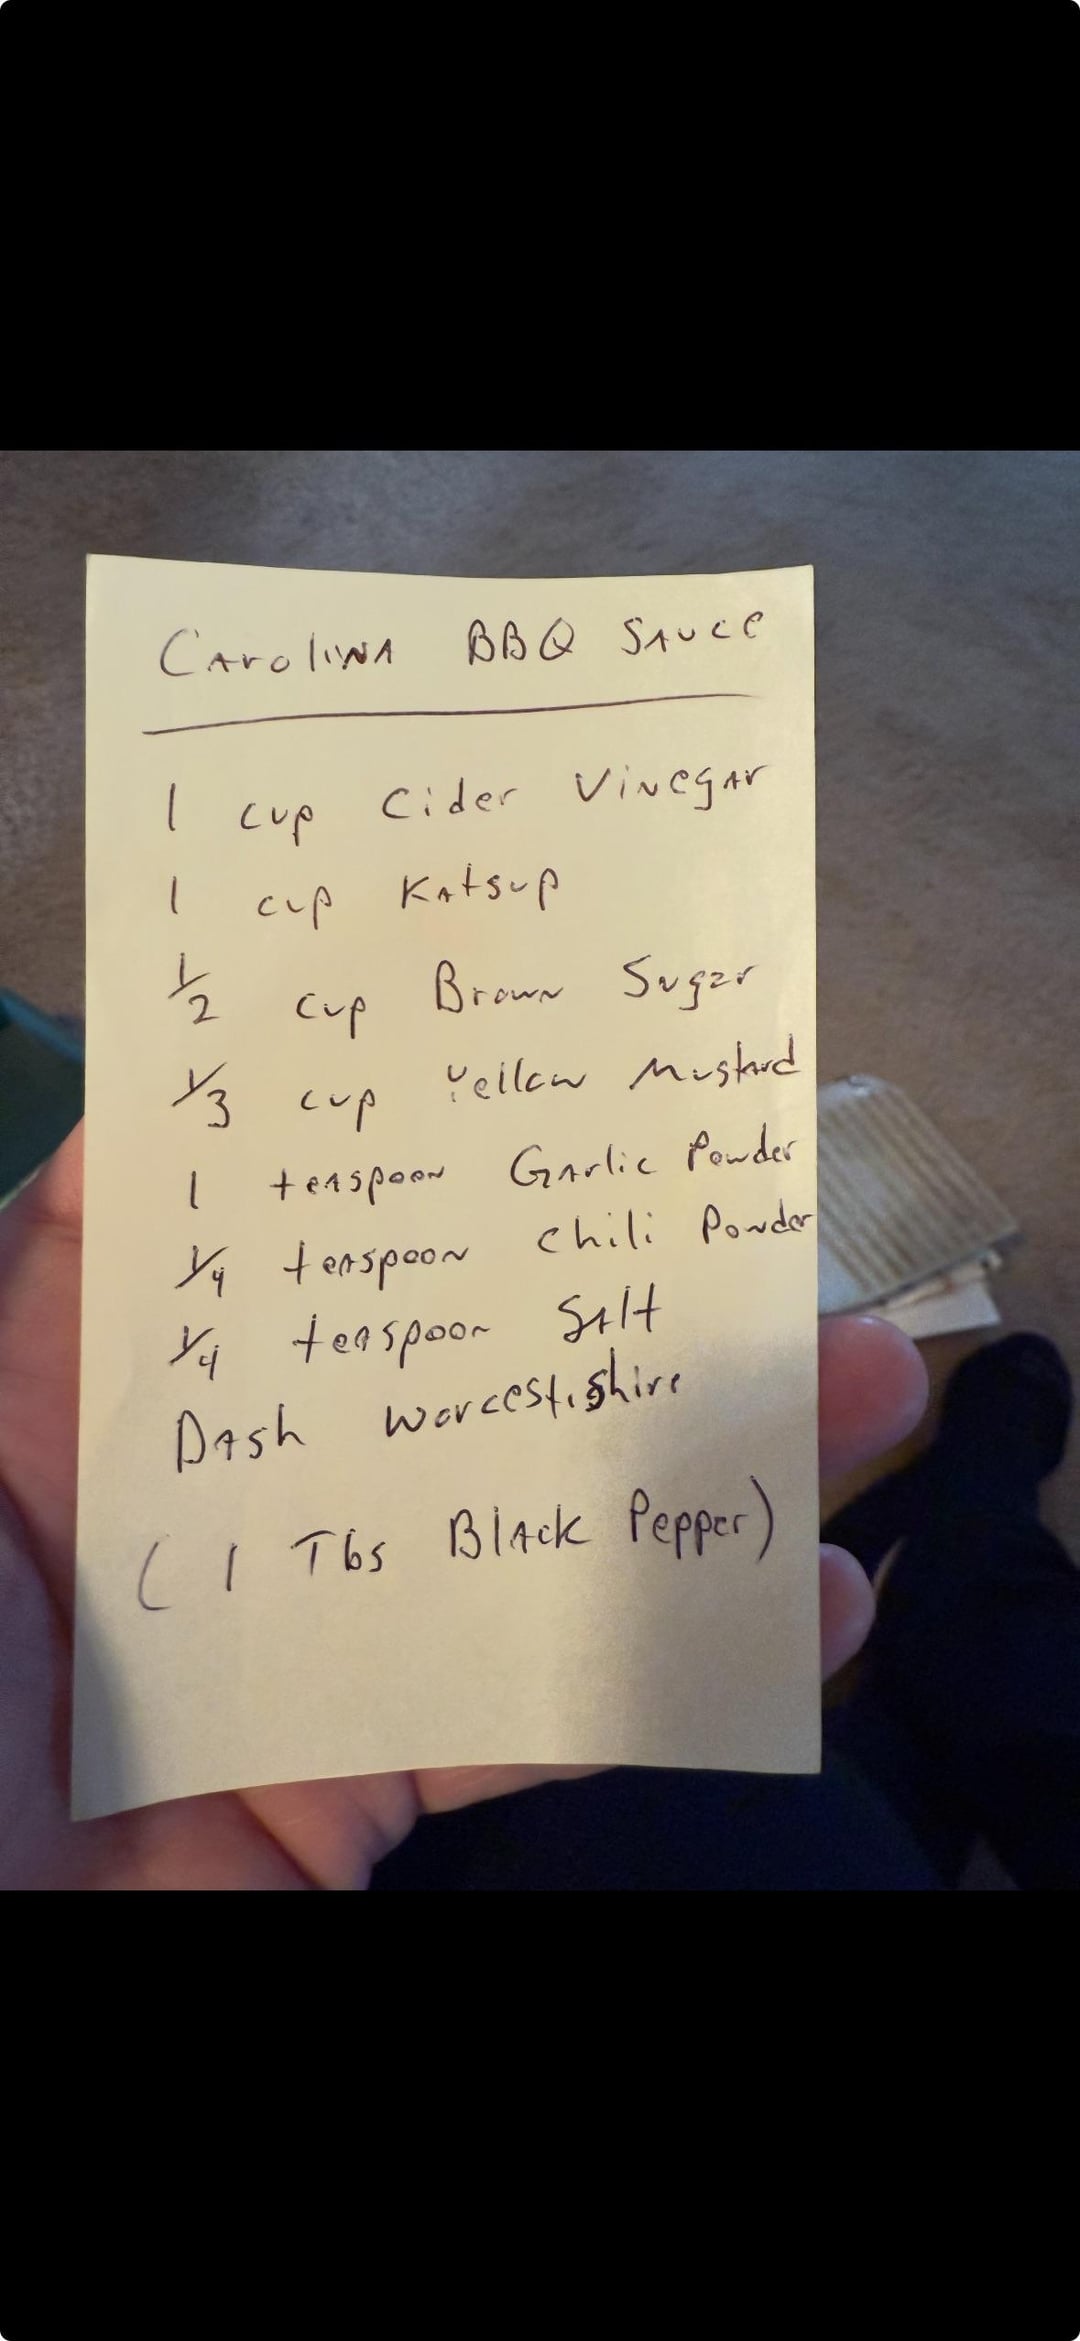 Carolina BBQ Sauce
1 cup Cider Vinegar
1 cup Katsup
1/2 cup Brown Sugar
1/3 cup Yellow Mustard
1 teaspoon Garlic Powder
1/4 teaspoon Chili Powder
1/4 teaspoon Salt
Dash Worcestishire
(1 Tbs Black Pepper)